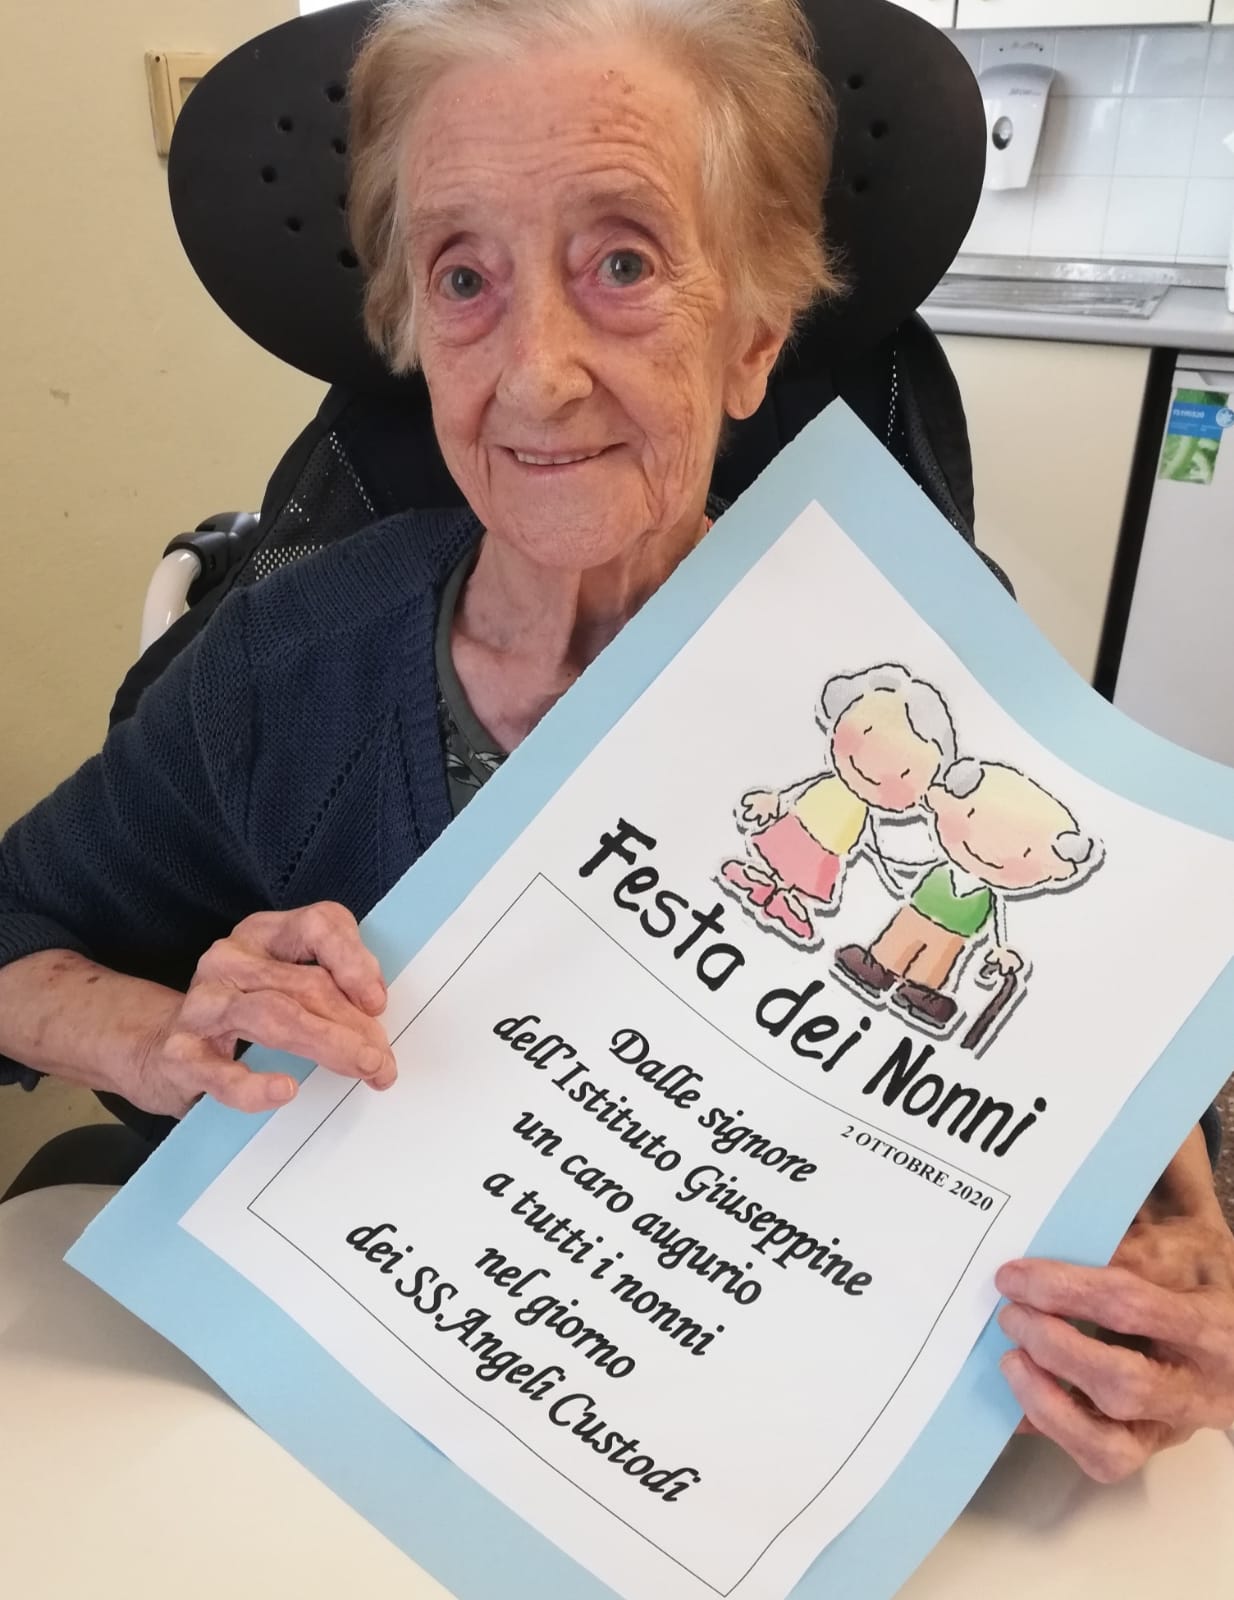 Festa dei Nonni
2 OTTOBRE 2020
Dalle signore
dell'Istituto Giuseppine
un caro augurio
a tutti i nonni
nel giorno
dei SS.Angeli Custodi